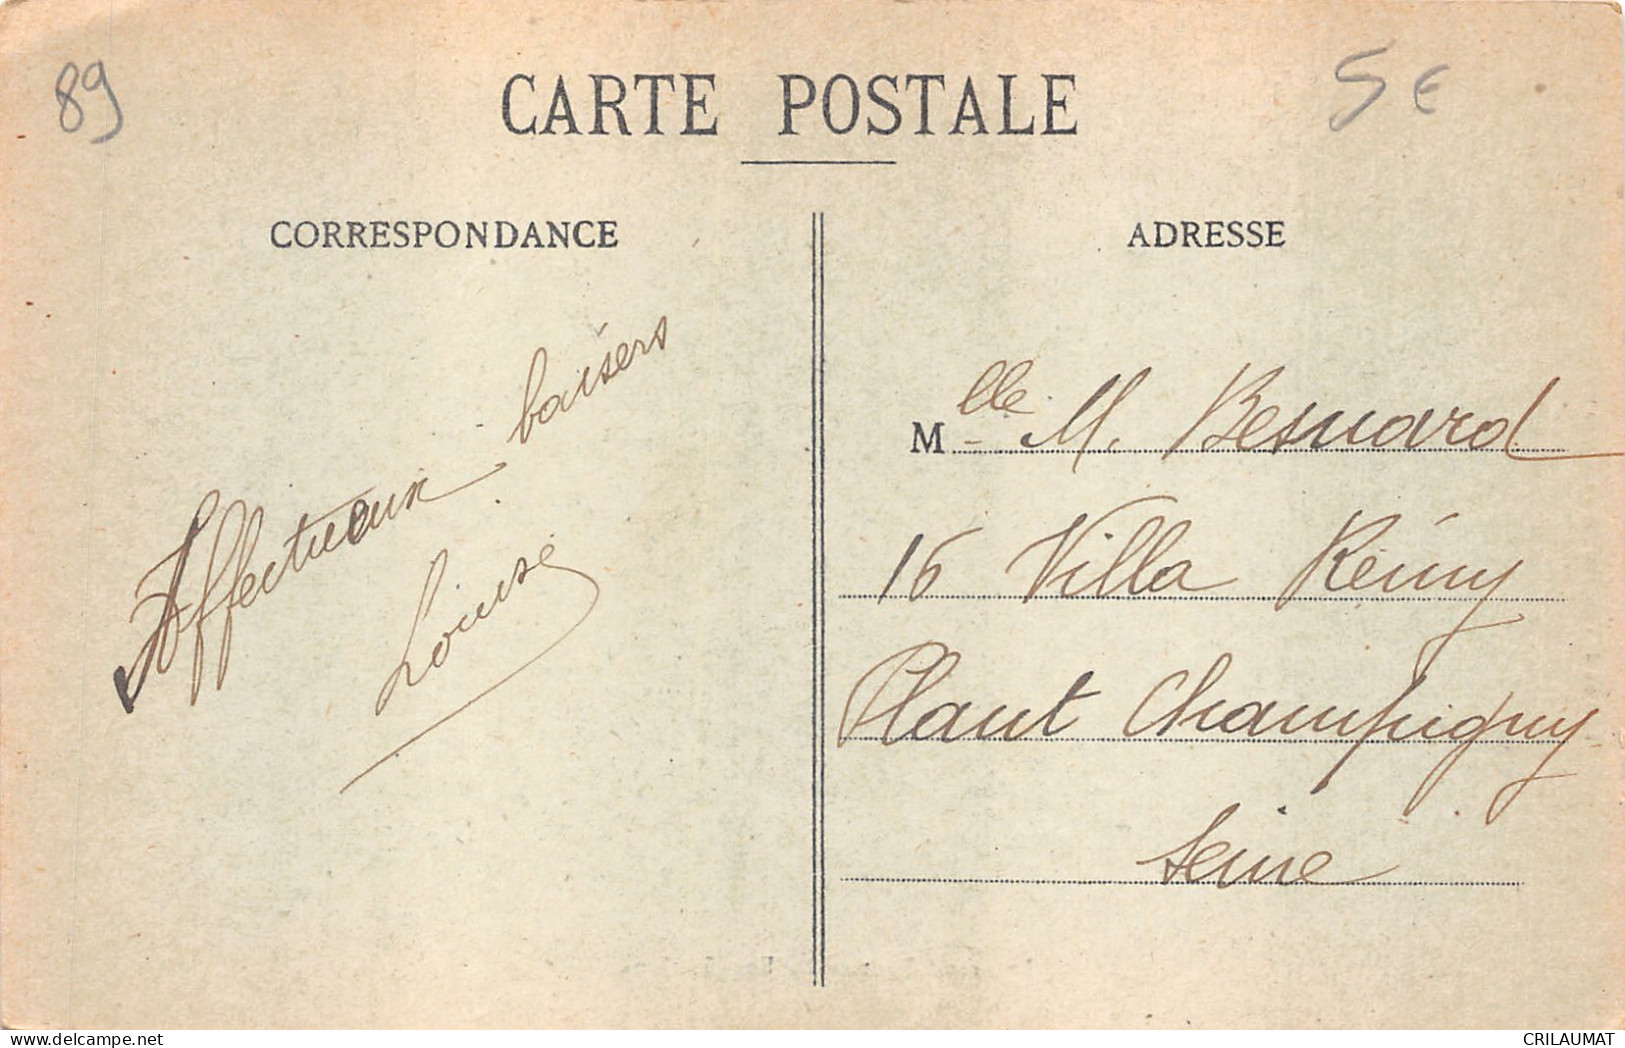 89
5€
CARTE POSTALE
CORRESPONDANCE
ADRESSE
Affectueux baisers
Louise
Mlle M. Besnard
16 Villa Rémy
Plant Champigny
Seine
delcampe.net
CRILAUMAT